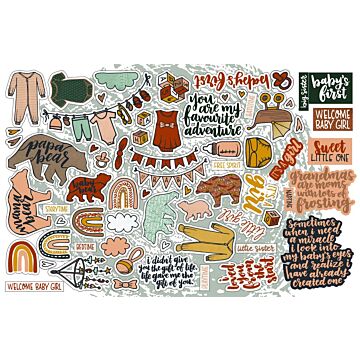 baby's first
you are my favourite adventure
big sister
baby's
first
WELCOME
BABY GIRL
Sweet
LITTLE ONE
papa
bear
mama
bear
baby
bear
FREE SPIRIT
girl
STORYTIME
BEDTIME
little sister
WELCOME BABY GIRL
i didn't give
you the gift of life,
life gave me the
gift of you.
grandmas
are moms
with lots of
frosting
Sometimes
when i need
a miracle
i look into
my baby's eyes
and realize i
have already
created one